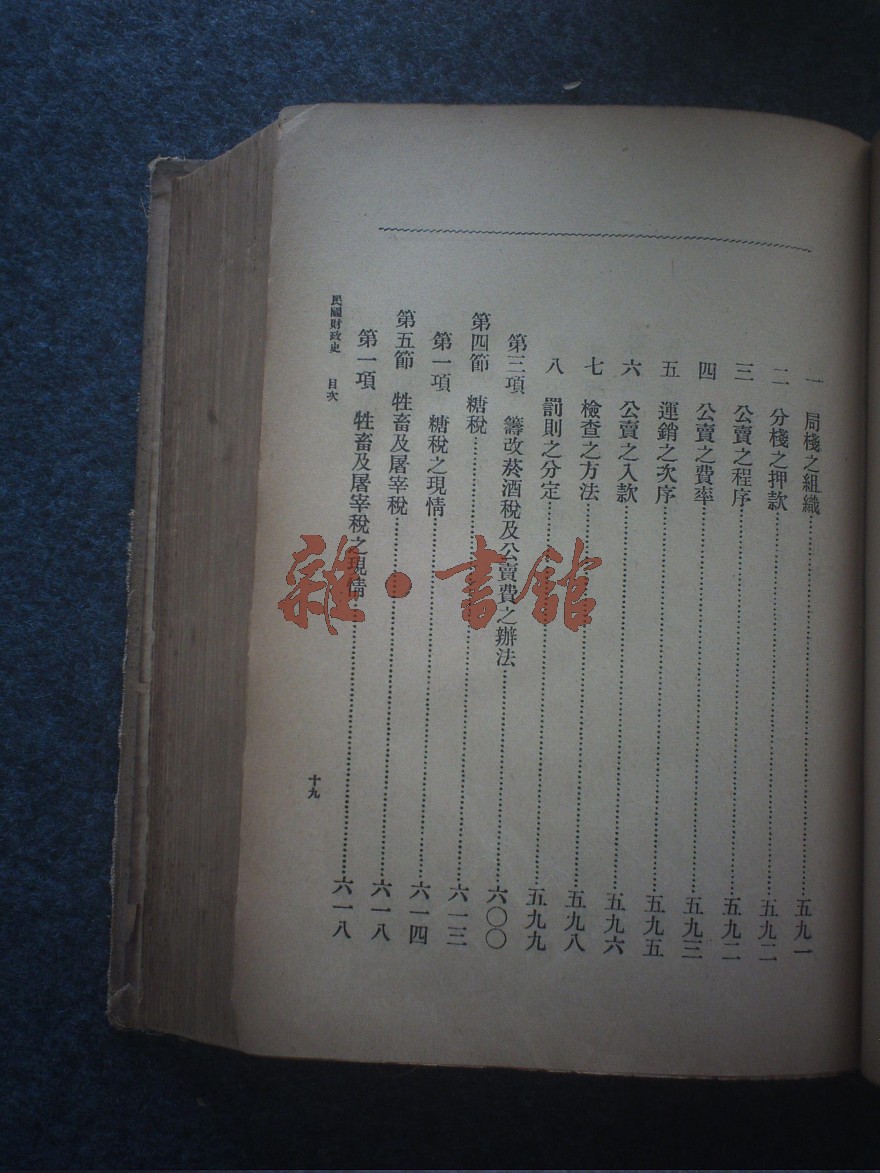 一　局棧之組織……五九一
二　分棧之押款……五九二
三　公賣之程序……五九二
四　公賣之費率……五九三
五　運銷之次序……五九五
六　公賣之入款……五九六
七　檢查之方法……五九八
八　罰則之分定……五九九
第三項　籌改菸酒稅及公賣費之辦法……六〇〇
第四節　糖稅……六一三
第一項　糖稅之現情……六一四
第五節　牲畜及屠宰稅……六一八
第一項　牲畜及屠宰稅之現情……六一八
民國財政史　目次
十九
雜·書館